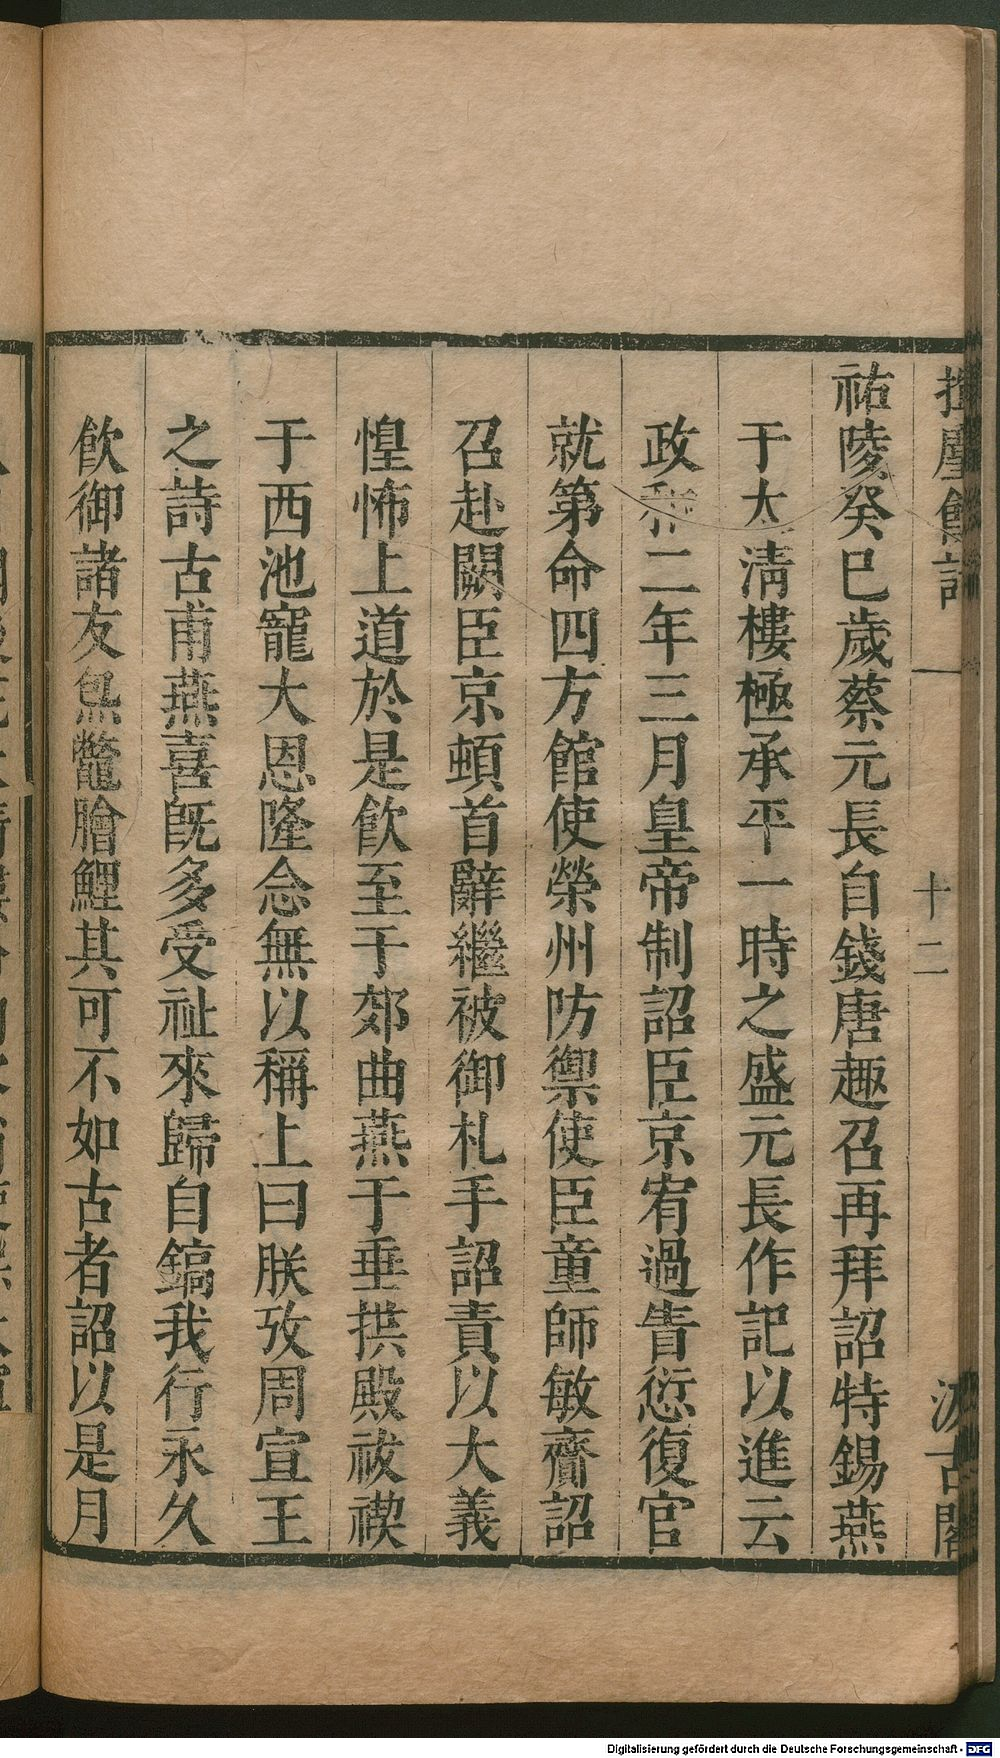 揮麈餘話 一 十二 汲古閣
祐陵癸巳歲蔡元長自錢唐趣召再拜詔特錫燕
于太清樓極承平一時之盛元長作記以進云
政和二年三月皇帝制詔臣京宥過眚愆復官
就第命四方館使榮州防禦使臣童師敏齎詔
召赴闕臣京頓首辭繼被御札手詔責以大義
惶怖上道於是飲至于郊曲燕于垂拱殿祓禊
于西池寵大恩隆念無以稱上曰朕攷周宣王
之詩吉甫燕喜既多受祉來歸自鎬我行永久
飲御諸友炰鱉膾鯉其可不如古者詔以是月
Digitalisierung gefördert durch die Deutsche Forschungsgemeinschaft - DFG